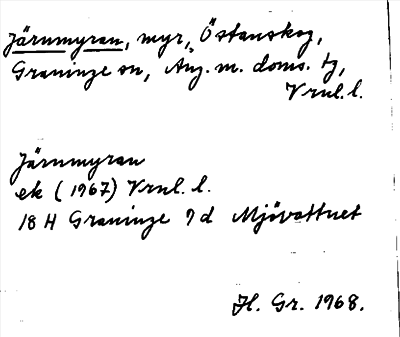 Järnmyran, myr, Östanskog,
Graninge sn, Ång. m. doms. tg,
Vrnl. l.
Järnmyran
ek (1967) Vrnl. l.
18 H Graninge 9 d Mjövattnet
H. Gr. 1968.